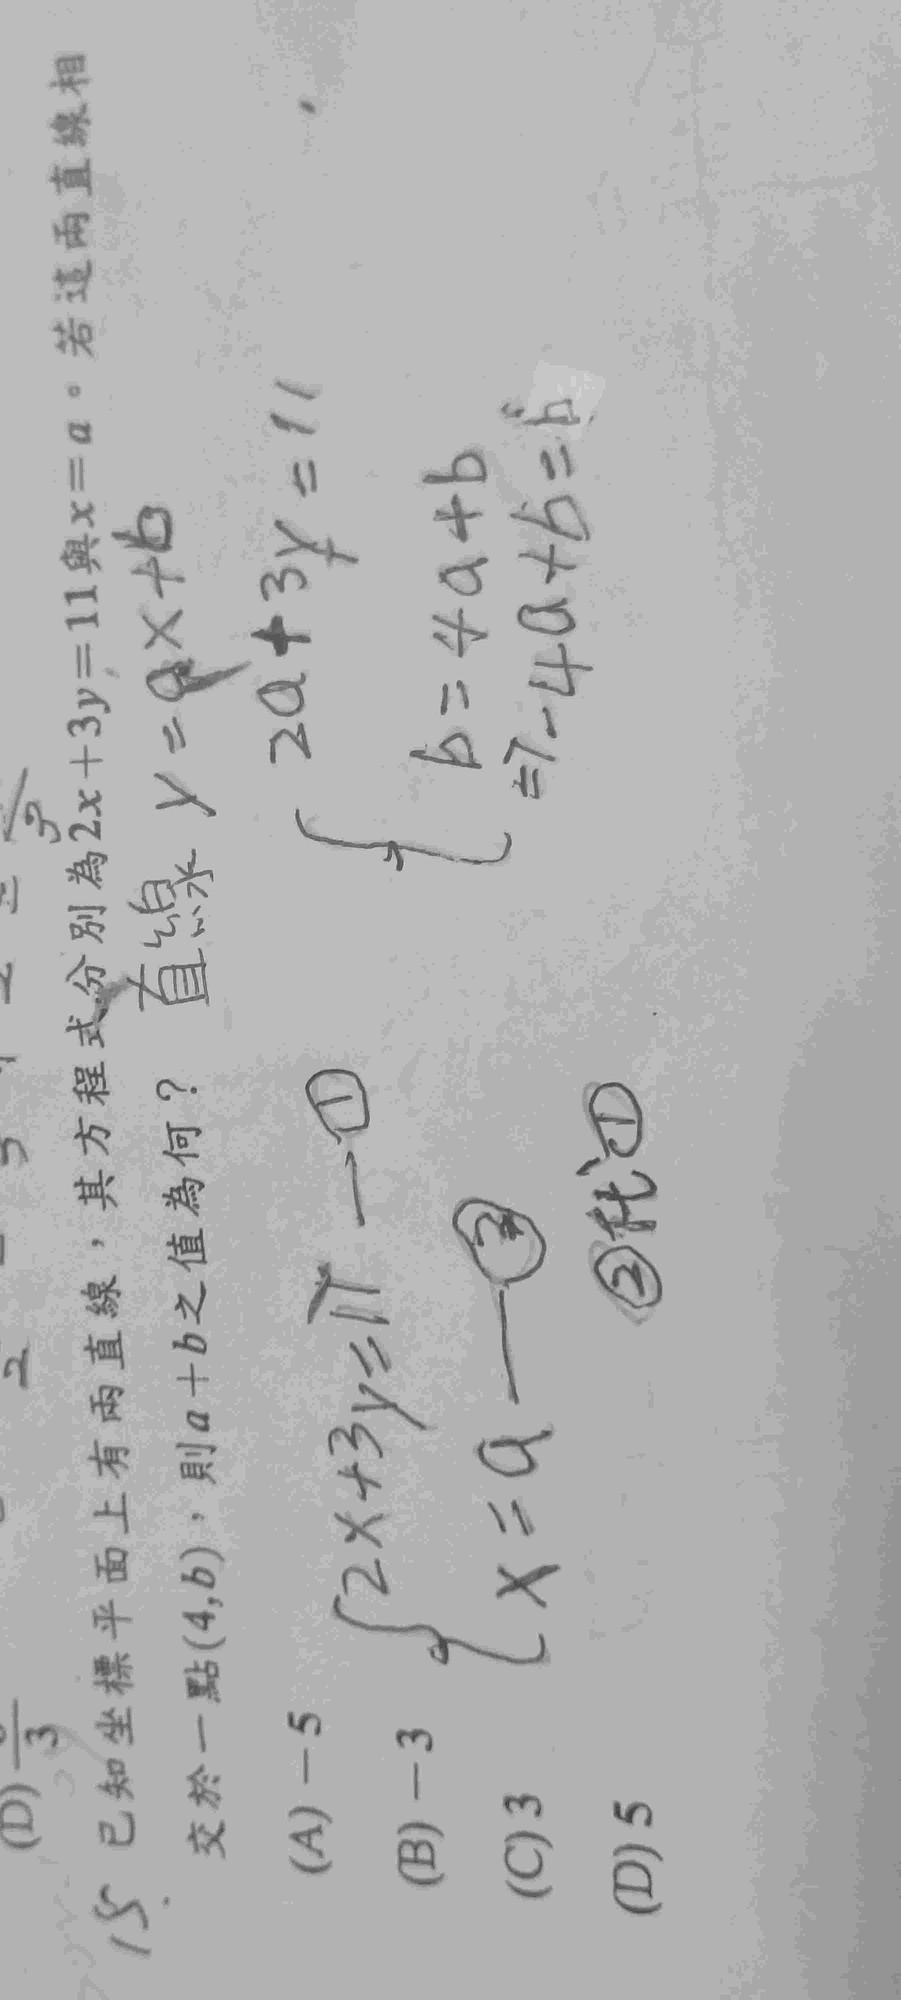 (D) 3
15. 已知坐標平面上有兩直線，其方程式分別為2x+3y=11與x=a。若這兩直線相
交於一點(4,b)，則a+b之值為何？
直線 y=ax+b
(A) －5
(B) －3
(C) 3
(D) 5
{2x+3y=11 —①
x=a —②
②代入①
{2a+3y=11
b=4a+b
⇒-4a+b=b